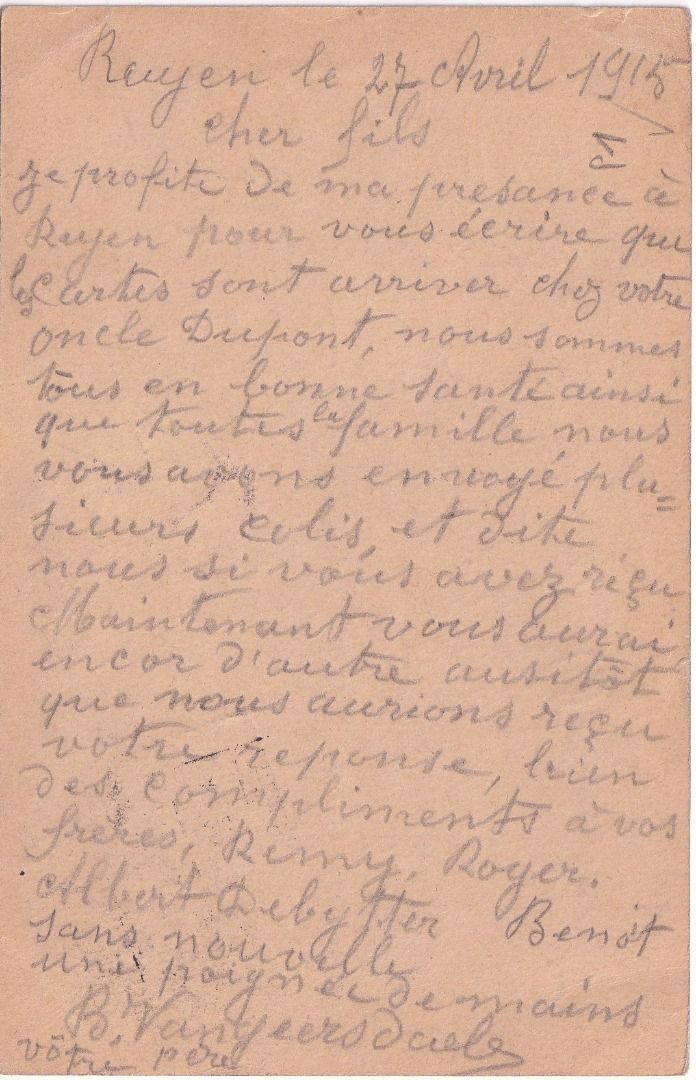 Ruyen le 27 Avril 1915
cher fils
Je profite de ma presance à
Ruyen pour vous écrire que
les Cartes sont arriver chez votre
oncle Dupont, nous sommes
tous en bonne santé ainsi
que toutes la famille nous
vous avons envoyé plu=
sieurs colis, et dite
nous si vous avez réçu
Maintenant vous aurai
encor d'autre ausitôt
que nous aurions reçu
votre reponse, bien
des compliments à vos
frères, Remy, Roger.
Albert Debytter Benoit
sans nouvelle
une poignée de mains
B. Vangeersdaele
vôtre père